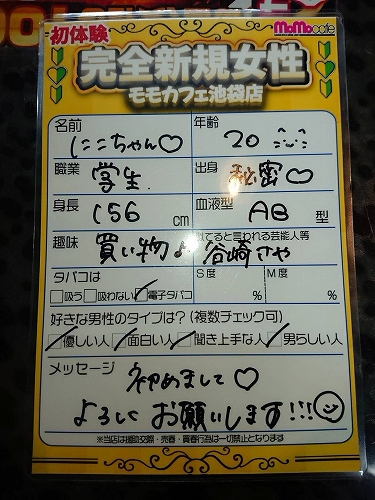 初体験
MoMocafe
完全新規女性
モモカフェ池袋店
名前
にこちゃん♡
年齢
20
職業
学生
出身
秘密♡
身長
156 cm
血液型
AB 型
趣味
買い物♪
似てると言われる芸能人等
谷崎さや
タバコは
吸う 吸わない 電子タバコ
S度
%
M度
%
好きな男性のタイプは?(複数チェック可)
優しい人 面白い人 聞き上手な人 男らしい人
メッセージ
初めまして♡
よろしくお願いします!!!
※当店は援助交際・売春・買春行為は一切禁止となります